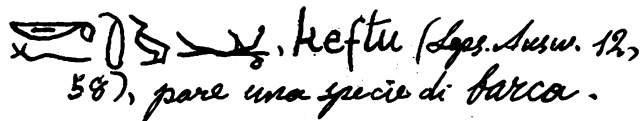 , keftu (Leps. Ausw. 12,
58), pare una specie di barca.